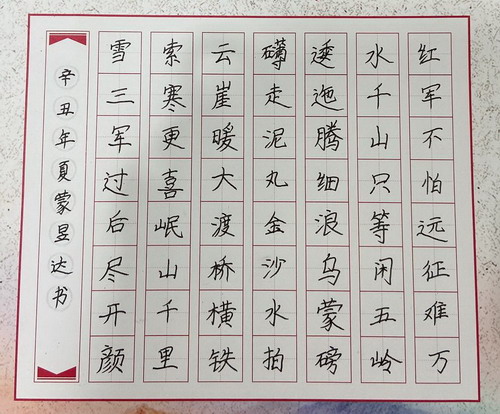 红军不怕远征难万
水千山只等闲五岭
逶迤腾细浪乌蒙磅
礴走泥丸金沙水拍
云崖暖大渡桥横铁
索寒更喜岷山千里
雪三军过后尽开颜
辛丑年夏蒙昱达书